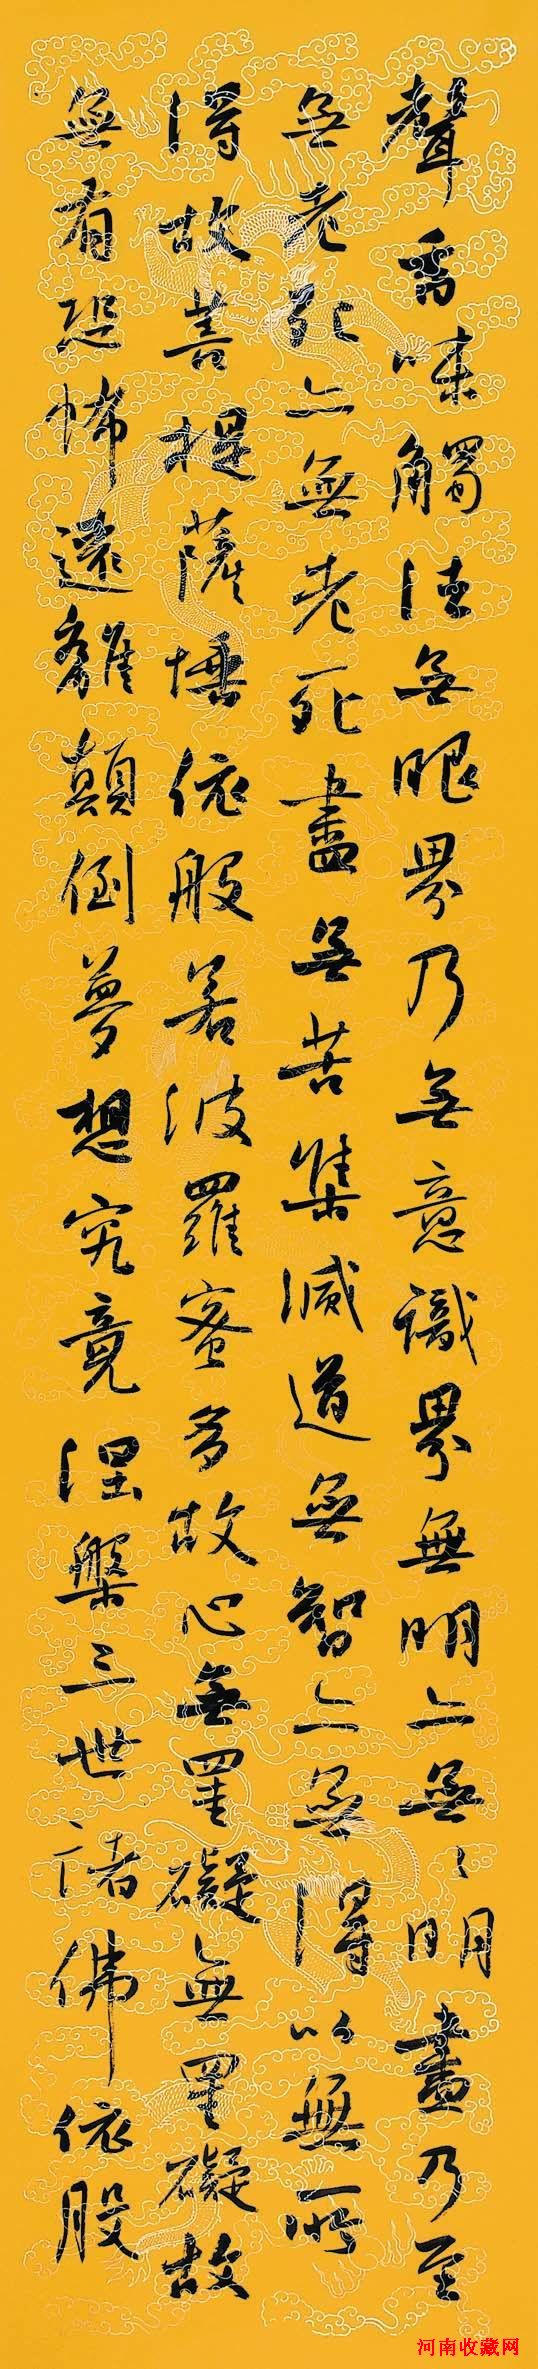 聲香味觸法無眼界乃無意識界無明亦無〻明盡乃至
無老死亦無老死盡無苦集滅道無智亦無得以無所
得故菩提薩埵依般若波羅蜜多故心無罣礙無罣礙故
無有恐怖遠離顛倒夢想究竟涅槃三世諸佛依般
河南收藏网